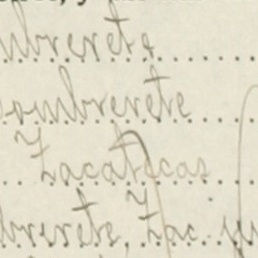 mbrerete
Sombrerete
Zacatecas
brerete, Zac.